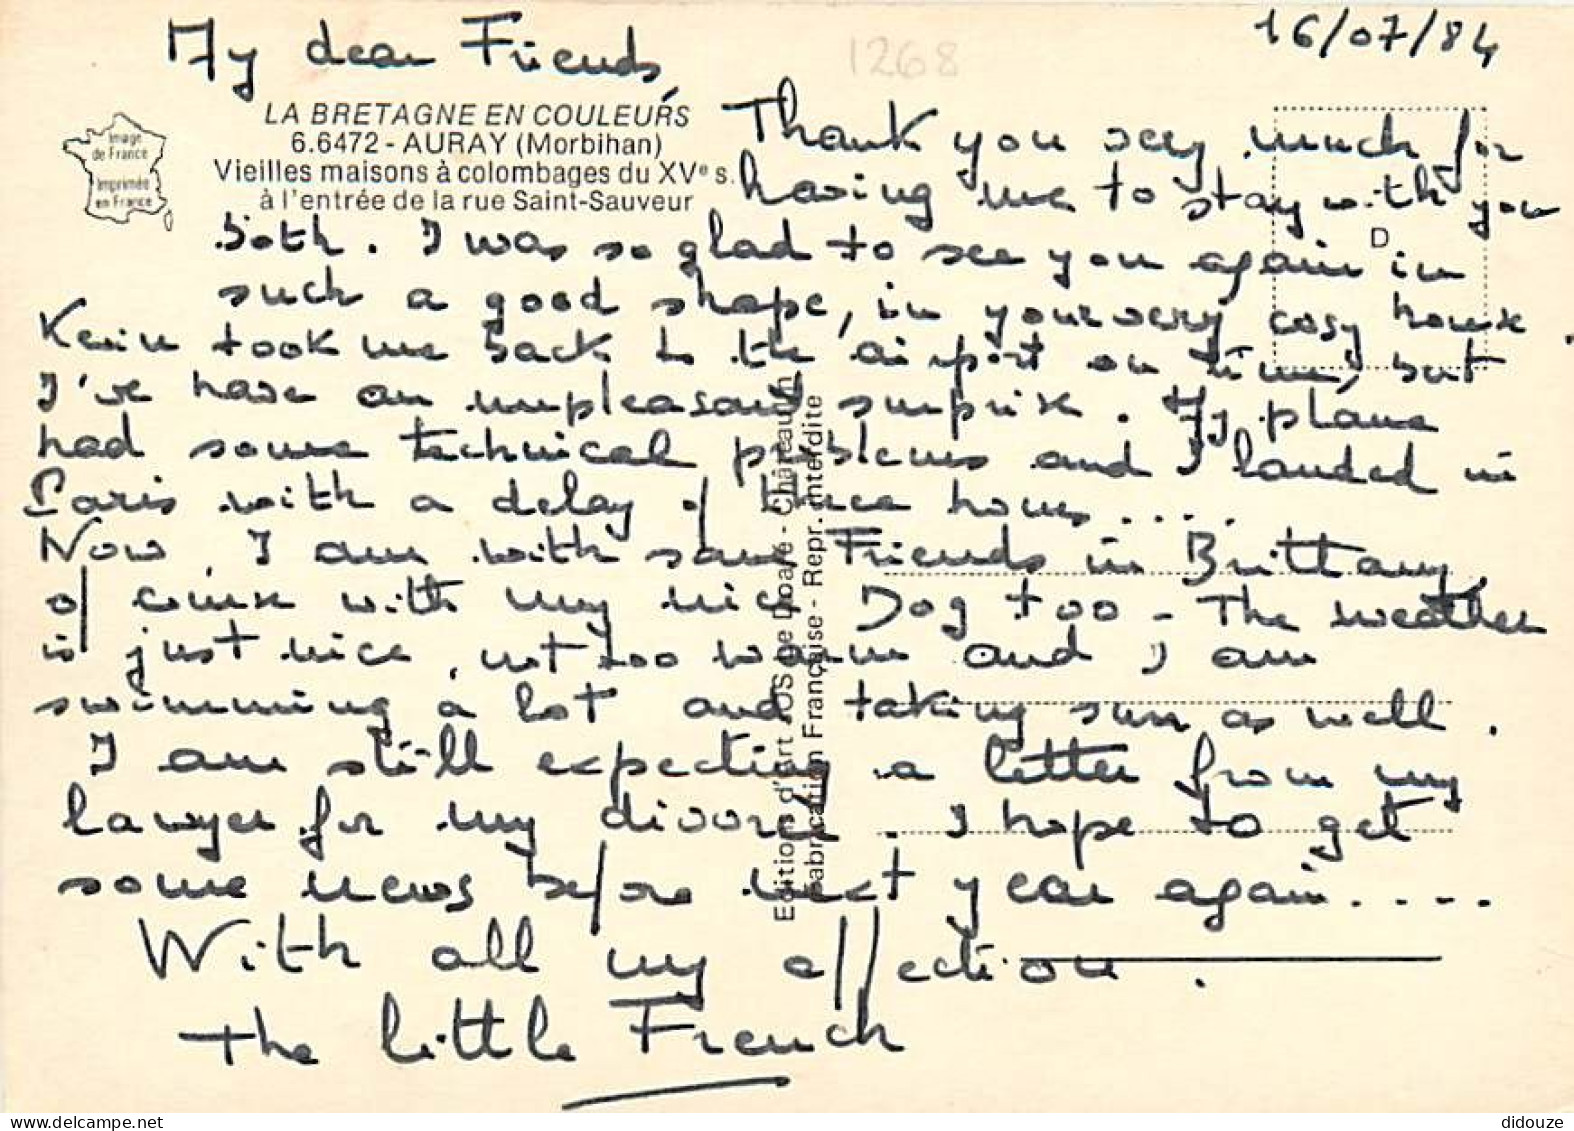 16/07/84
My dear Friends,
1268
LA BRETAGNE EN COULEURS
6.6472 - AURAY (Morbihan)
Vieilles maisons à colombages du XVe s.
à l'entrée de la rue Saint-Sauveur
Image
de France
Imprimée
en France
D
Thank you very much for
having me to stay with you
both. I was so glad to see you again in
such a good shape, in your very cosy house.
Kevin took me back to the airport on time, but
I've have an unpleasant surprise. My plane
had some technical problems and I landed in
Paris with a delay of three hours.....
Now, I am with some Friends in Brittany,
of course with my nice Dog too - The weather
is just nice, not too warm and I am
swimming a lot and taking sun as well.
I am still expecting a letter from my
lawyer for my divorce. I hope to get
some news before next year again.....
With all my affection.
The little French
Editions d'Art JOS Le Doaré - Châteaulin
Fabrication Française - Repr. interdite
didouze